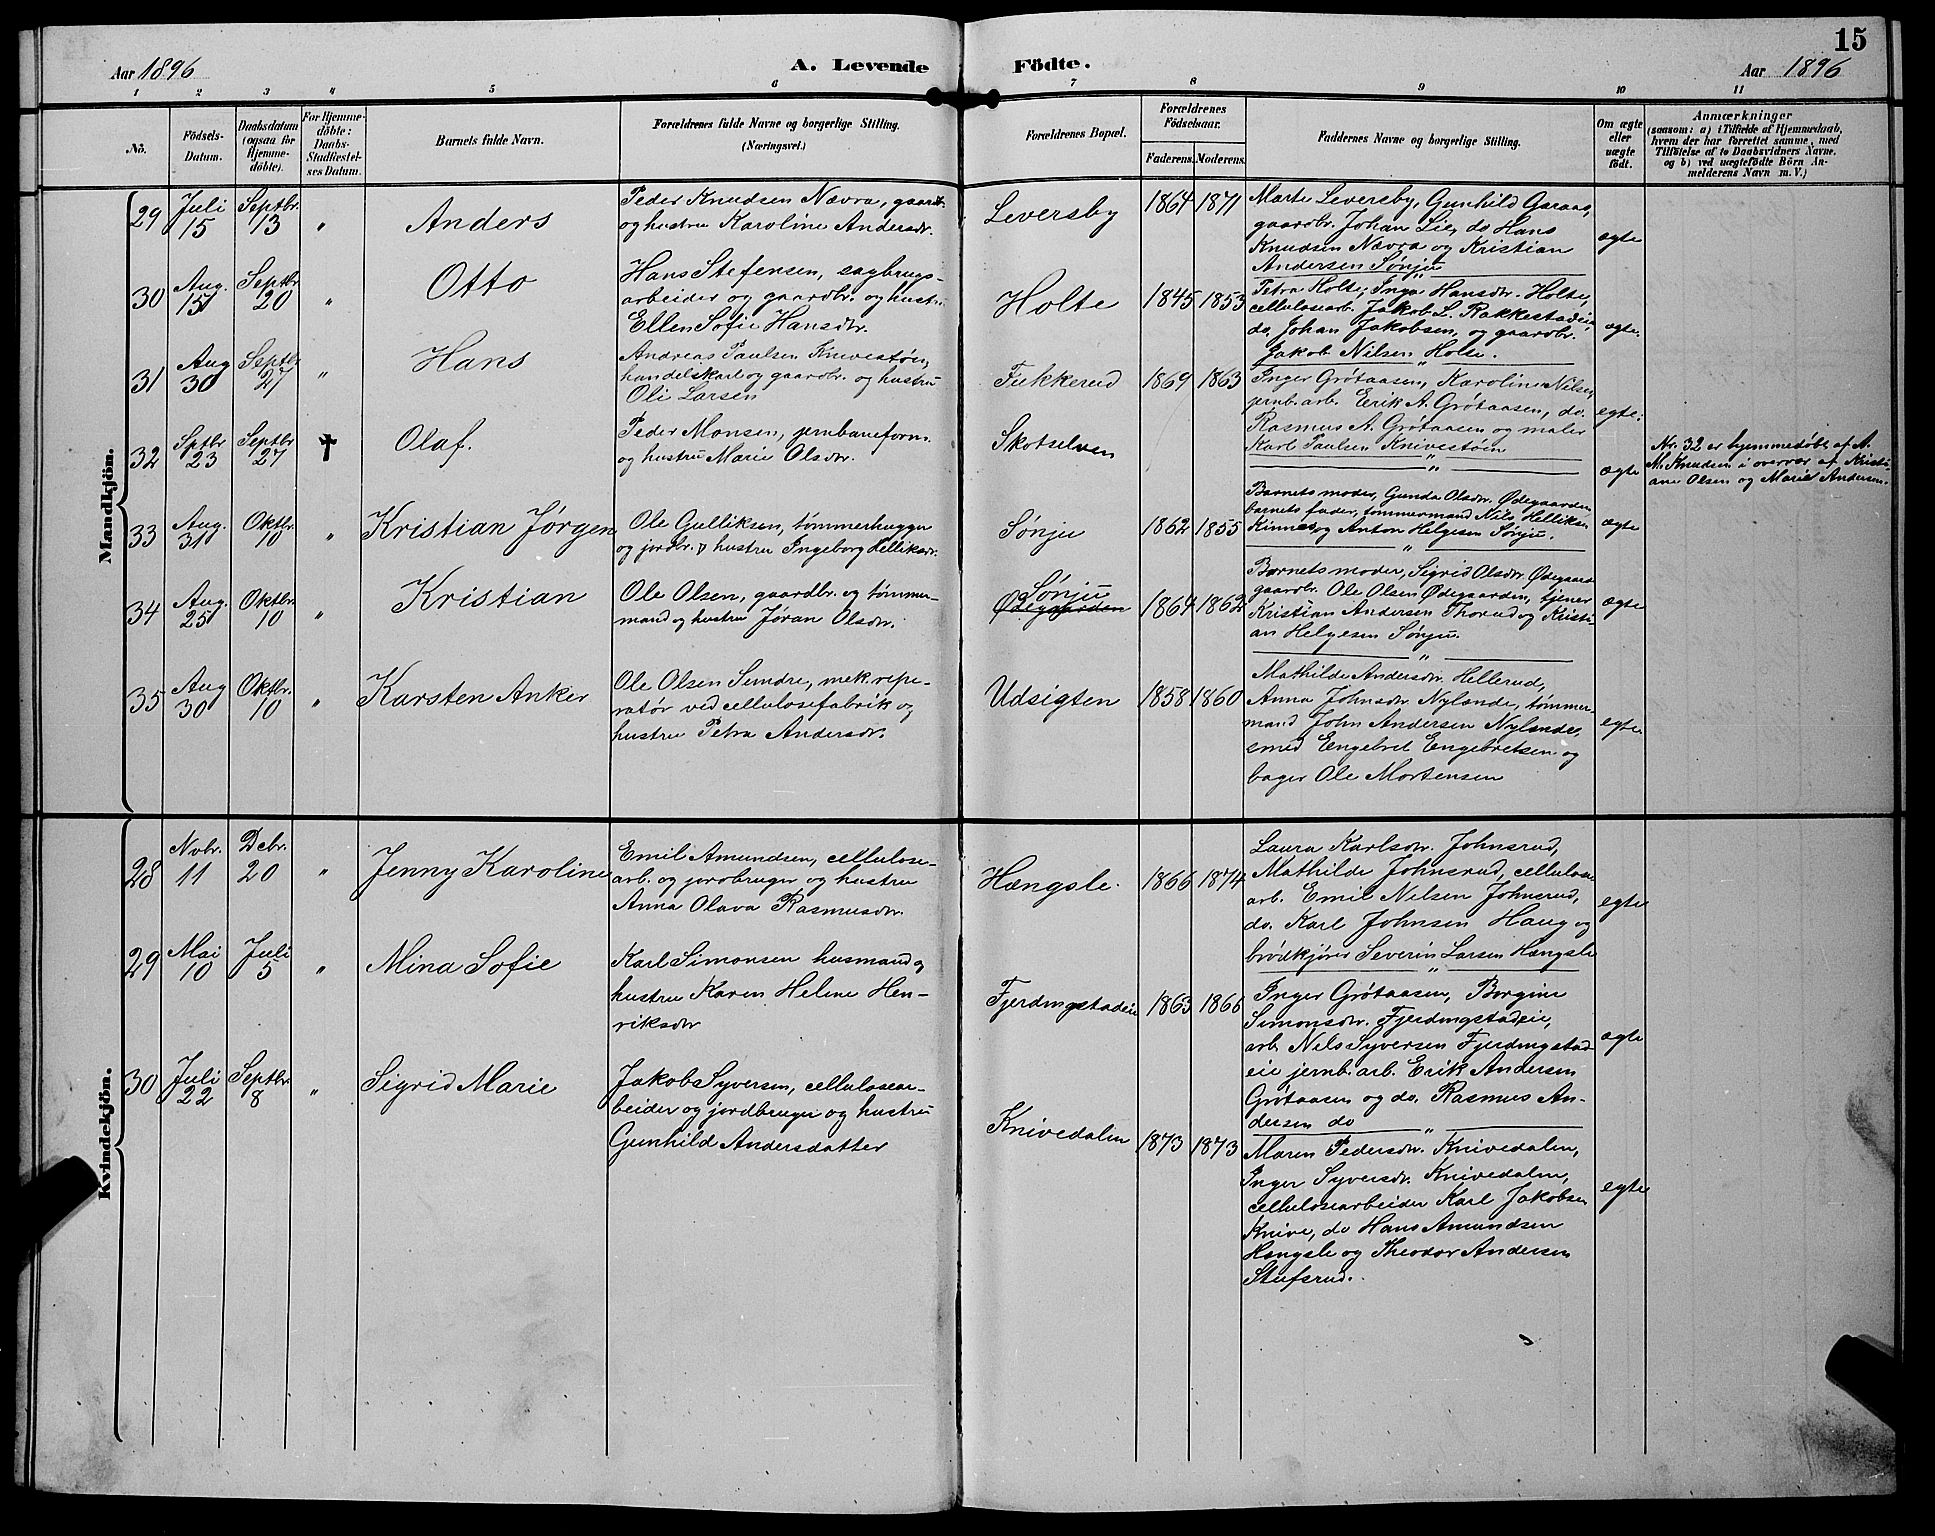 15
Aar 1896
A. Levende Födte.
Aar 1896
1 2 3 4 5 6 7 8 9 10 11
Nô.
Födsels-
Datum.
Daabsdatum
(ogsaa for
Hjemme-
döbte).
For Hjemme-
döbte:
Daabs-
Stadfæstel-
ses Datum.
Barnets fulde Navn.
Forældrenes fulde Navne og borgerlige Stilling.
(Næringsvei.)
Forældrenes Bopæl.
Forældrenes
Födselsaar.
Faderens. Moderens.
Faddernes Navne og borgerlige Stilling.
Om ægte
eller
uægte
födt.
Anmærkninger
(saasom: a) i Tilfælde af Hjemmedaab,
hvem der har forrettet samme, med
Tilföielse af to Daabsvidners Navne,
og b) ved uægtefödte Börn An-
melderens Navn m. V.)
Mandkjön.
29
Juli
15
Septbr.
13
"
Anders
Peder Knudsen Nævra, gaardbr.
og hustru Karoline Andersdr.
Leversby
1864 1871
Marte Leversby, Gunhild Garaas,
gaardbr. Johan Lie, do Hans
Knudsen Nævra og Kristian
Andersen Sønju
ægte
30
Aug.
15
Septbr
20
"
Otto
Hans Stefensen, sagbrugs-
arbeider og gaardbr. og hustru
Ellen Sofie Hansdr.
Holte
1845 1853
Petra Holte, Inga Hansdr. Holte,
cellulosearb. Jakob L. Rakkestadeie,
do. Johan Jakobsen, og gaardbr.
Jakob Nilsen Holte.
ægte.
31
Aug
30
Septbr
27
"
Hans
Andreas Paulsen Knivestøen,
handelskarl og gaardbr. og hustru
Oli Larsen
Fukkerud
1869 1863
Inger Grøtaasen, Karoline Nilsen,
jernb. arb. Eerik A. Grøtaasen, do.
Rasmus A. Grøtaasen og maler
Karl Paulsen Knivestøen
egte.
32
Sptbr
23
Septbr
27
†
Olaf.
Peder Monsen, jernbaneform.
og hustru Marie Olsdr.
Skotselven
"
ægte
Nr. 32 er hjemmedøbt af A.
M. Knudsen i overvær af Kristi-
ane Olsen og Marie Andersen.
33
Aug.
31
Oktbr.
10
"
Kristian Jørgen
Ole Gulliksen, tømmerhugger
og jordbr. & hustru Ingeborg Helliksdr.
Sønju
1862 1855
Barnets moder, Gunda Olsdr. Ødegaarden
barnets fader, tømmermand Nils Helliksen
Kinnes, og Anton Helgesen Sønju.
ægte
34
Aug.
25
Oktbr.
10
"
Kristian
Ole Olsen, gaardbr. og tømmer-
mand og hustru Jøran Olsdr.
Sønju
Ødegaarden
1864 1862
Barnets moder, Sigrid Olsdr. Ødegaard
gaardbr. Ole Olsen Ødegaarden, tjener
Kristian Andersen Thorud og Kristi-
an Helgesen Sønju.
ægte
35
Aug
30
Oktbr.
10
"
Karsten Anker
Ole Olsen Semdre, mek. repe-
ratør ved cellulosefabrik og
hustru Petra Andersdr.
Udsigten
1858 1860
Mathilde Andersdr. Hellerud,
Anna Johnsdr. Nylande, tømmer-
mand John Andersen Nylande,
smed Engebret Engebretsen og
bager Ole Mortensen
egte
Kvindekjön.
28
Novbr.
11
Dcbr.
20
"
Jenny Karoline
Emil Amundsen, cellulose-
arb. og jordbruger og hustru
Anna Olava Rasmusdr.
Hængsle.
1866 1874
Laura Karlsdr. Johnsrud,
Mathilde Johnsrud, cellulose
arb. Emil Nilsen Johnsrud,
do. Karl Johnsen Haug og
brødkjører Severin Larsen Hængsle
egte
29
Mai
10
Juli
5
"
Mina Sofie
Karl Simonsen husmand og
hustru Karen Helene Hen-
riksdr
Fjerdingstadeie
1863 1866
Inger Grøtaasen, Borgine
Simonsdr. Fjerdingstadeie,
arb. Nils Syversen Fjerdingstad-
eie jernb. arb. Erik Andersen
Grøtaasen og do. Rasmus An-
dersen do
ægte
30
Juli
22
Septbr.
8
"
Sigrid Marie
Jakob Syversen, cellulosear-
beider og jordbruger og hustru
Gunhild Andersdatter
Knivedalen
1873 1873
Maren Pedersdr. Knivedalen,
Inger Syversdr. Knivedalen,
cellulosearbeider Karl Jakobsen
Knive, do Hans Amundsen
Hængsle og Theodor Andersen
Stufsrud.
egte